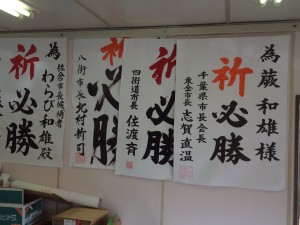 為蕨和雄様
祈必勝
千葉県市長会長
東金市長志賀直温
祈必勝
四街道市長 佐渡斉
祈必勝
八街市長北村新司
為わらび和雄殿
祈必勝
佐倉市長候補者